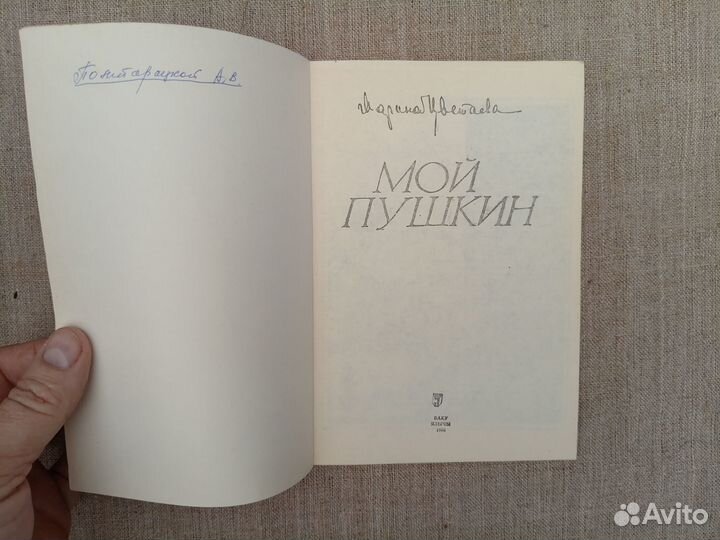 Полторацкой А.В.
Марина Цветаева
МОЙ
ПУШКИН
БАКУ
ЯЗЫЧЫ
Avito